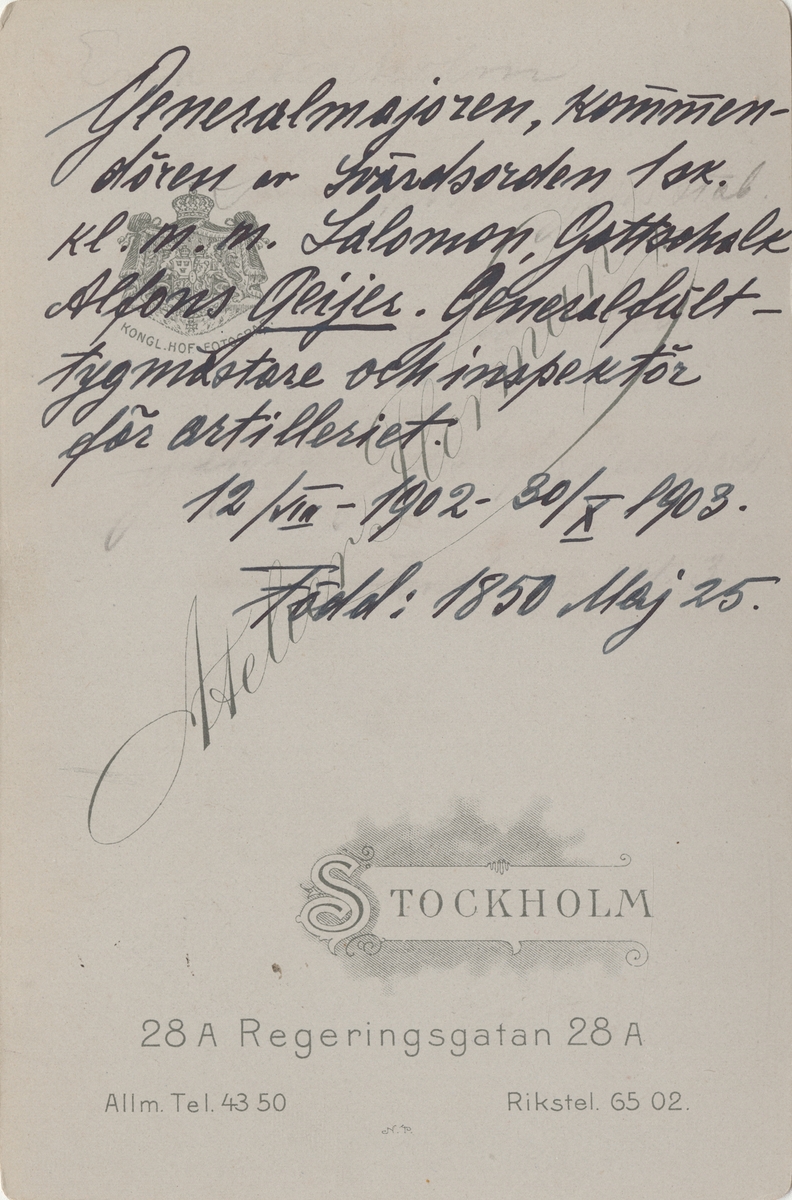 Generalmajoren, kommen-
dören av Svärdsorden 1sk.
kl. m. m. Salomon, Gottschalk
Alfons Geijer. Generalfält-
tygmästare och inspektör
för artilleriet.
12/VIII - 1902 - 30/X 1903.
Född: 1850 Maj 25.
KONGL. HOF-FOTOGRAF
STOCKHOLM
28 A Regeringsgatan 28 A
Allm. Tel. 43 50 Rikstel. 65 02.